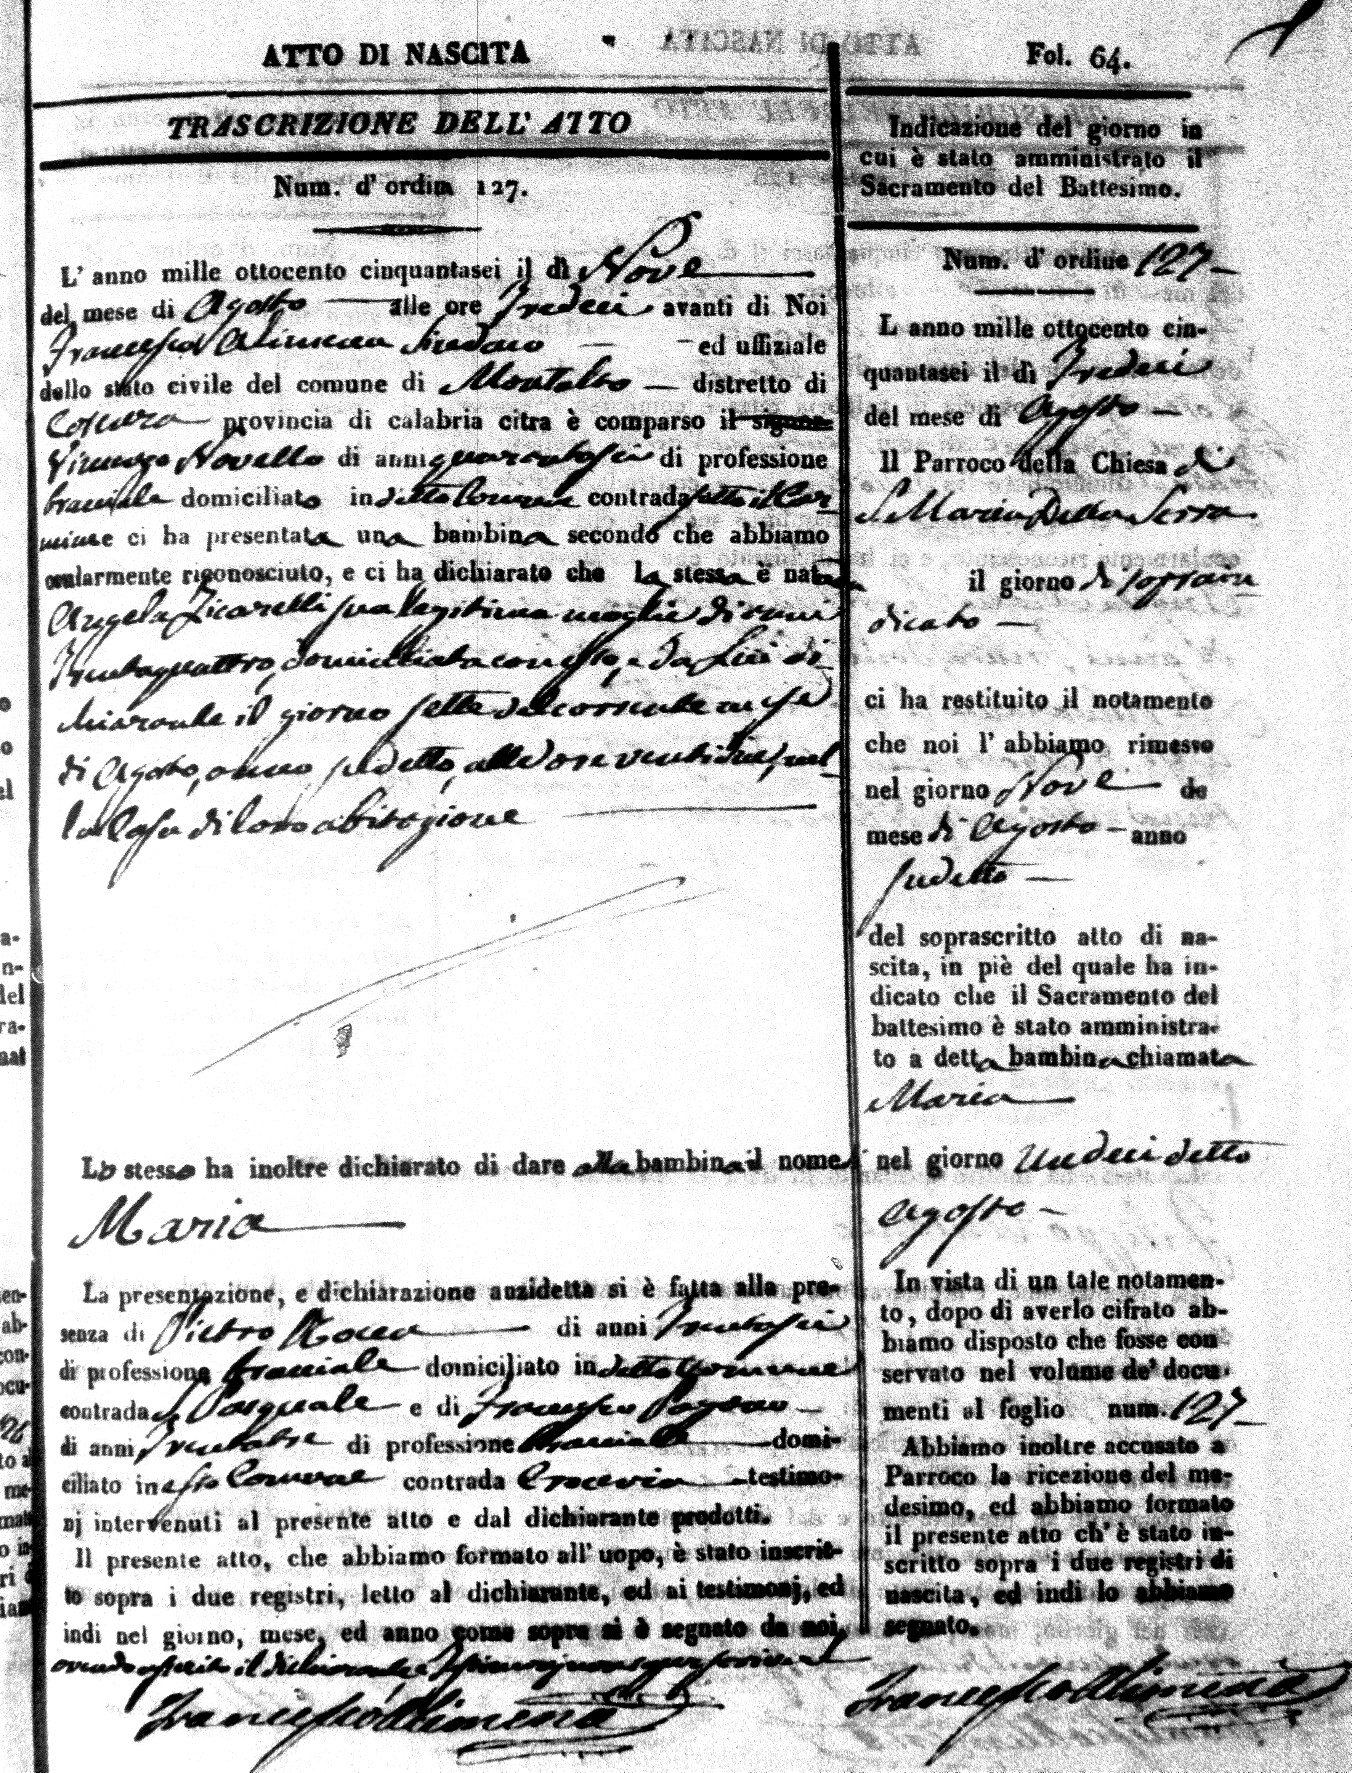 ATTO DI NASCITA
TRASCRIZIONE DELL' ATTO
Num. d' ordin 127.
L' anno mille ottocento cinquantasei il dì Nove
del mese di Agosto alle ore Tredeci avanti di Noi
Francesco Alimena Sindaco ed uffiziale
dello stato civile del comune di Montalto distretto di
Cosenza provincia di calabria citra è comparso il signor
Vincenzo Novello di anni quarantasei di professione
braciale domiciliato in detto Comune contrada sotto il Car-
mine ci ha presentata una bambina secondo che abbiamo
ocularmente riconosciuto, e ci ha dichiarato che la stessa è nata da
Angela Zicarelli sua legitima moglie di anni
Trentaquattro, domiciliata con esso, e da Lui di-
chiarante il giorno sette del corrente mese
di Agosto, anno sudetto, alle ore ventidue, nel-
la Casa di loro abitazione
Lo stesso ha inoltre dichiarato di dare alla bambina il nome di
Maria
La presentazione, e dichiarazione anzidetta si è fatta alla pre-
senza di Pietro Rocca di anni Trentasei
di professione braciale domiciliato in detto Comune
contrada S. Pasquale e di Francesco Pagano
di anni Trentatre di professione braciale domi-
ciliato in esso Comune contrada Crocevia testimo-
nj intervenuti al presente atto e dal dichiarante prodotti.
Il presente atto, che abbiamo formato all' uopo, è stato inscrit-
to sopra i due registri, letto al dichiarante, ed ai testimonj, ed
indi nel giorno, mese, ed anno come sopra si è segnato da noi,
avendo asserito il dichiarante, e Testimonj non saper scrivere
Francesco Alimena
Fol. 64.
Indicazione del giorno in
cui è stato amministrato il
Sacramento del Battesimo.
Num. d' ordine 127
L anno mille ottocento cin-
quantasei il dì Tredeci
del mese di Agosto
Il Parroco della Chiesa di
S. Maria Della Serra
il giorno di sopra in
dicato
ci ha restituito il notamento
che noi l' abbiamo rimesso
nel giorno Nove de
mese di Agosto anno
sudetto
del soprascritto atto di na-
scita, in piè del quale ha in-
dicato che il Sacramento del
battesimo è stato amministra-
to a detta bambina chiamata
Maria
nel giorno Undeci detto
Agosto
In vista di un tale notamen-
to, dopo di averlo cifrato ab-
biamo disposto che fosse con
servato nel volume de' docu-
menti al foglio num. 127
Abbiamo inoltre accusato a
Parroco la ricezione del me-
desimo, ed abbiamo formato
il presente atto ch' è stato in-
scritto sopra i due registri di
nascita, ed indi lo abbiamo
segnato.
Francesco Alimena